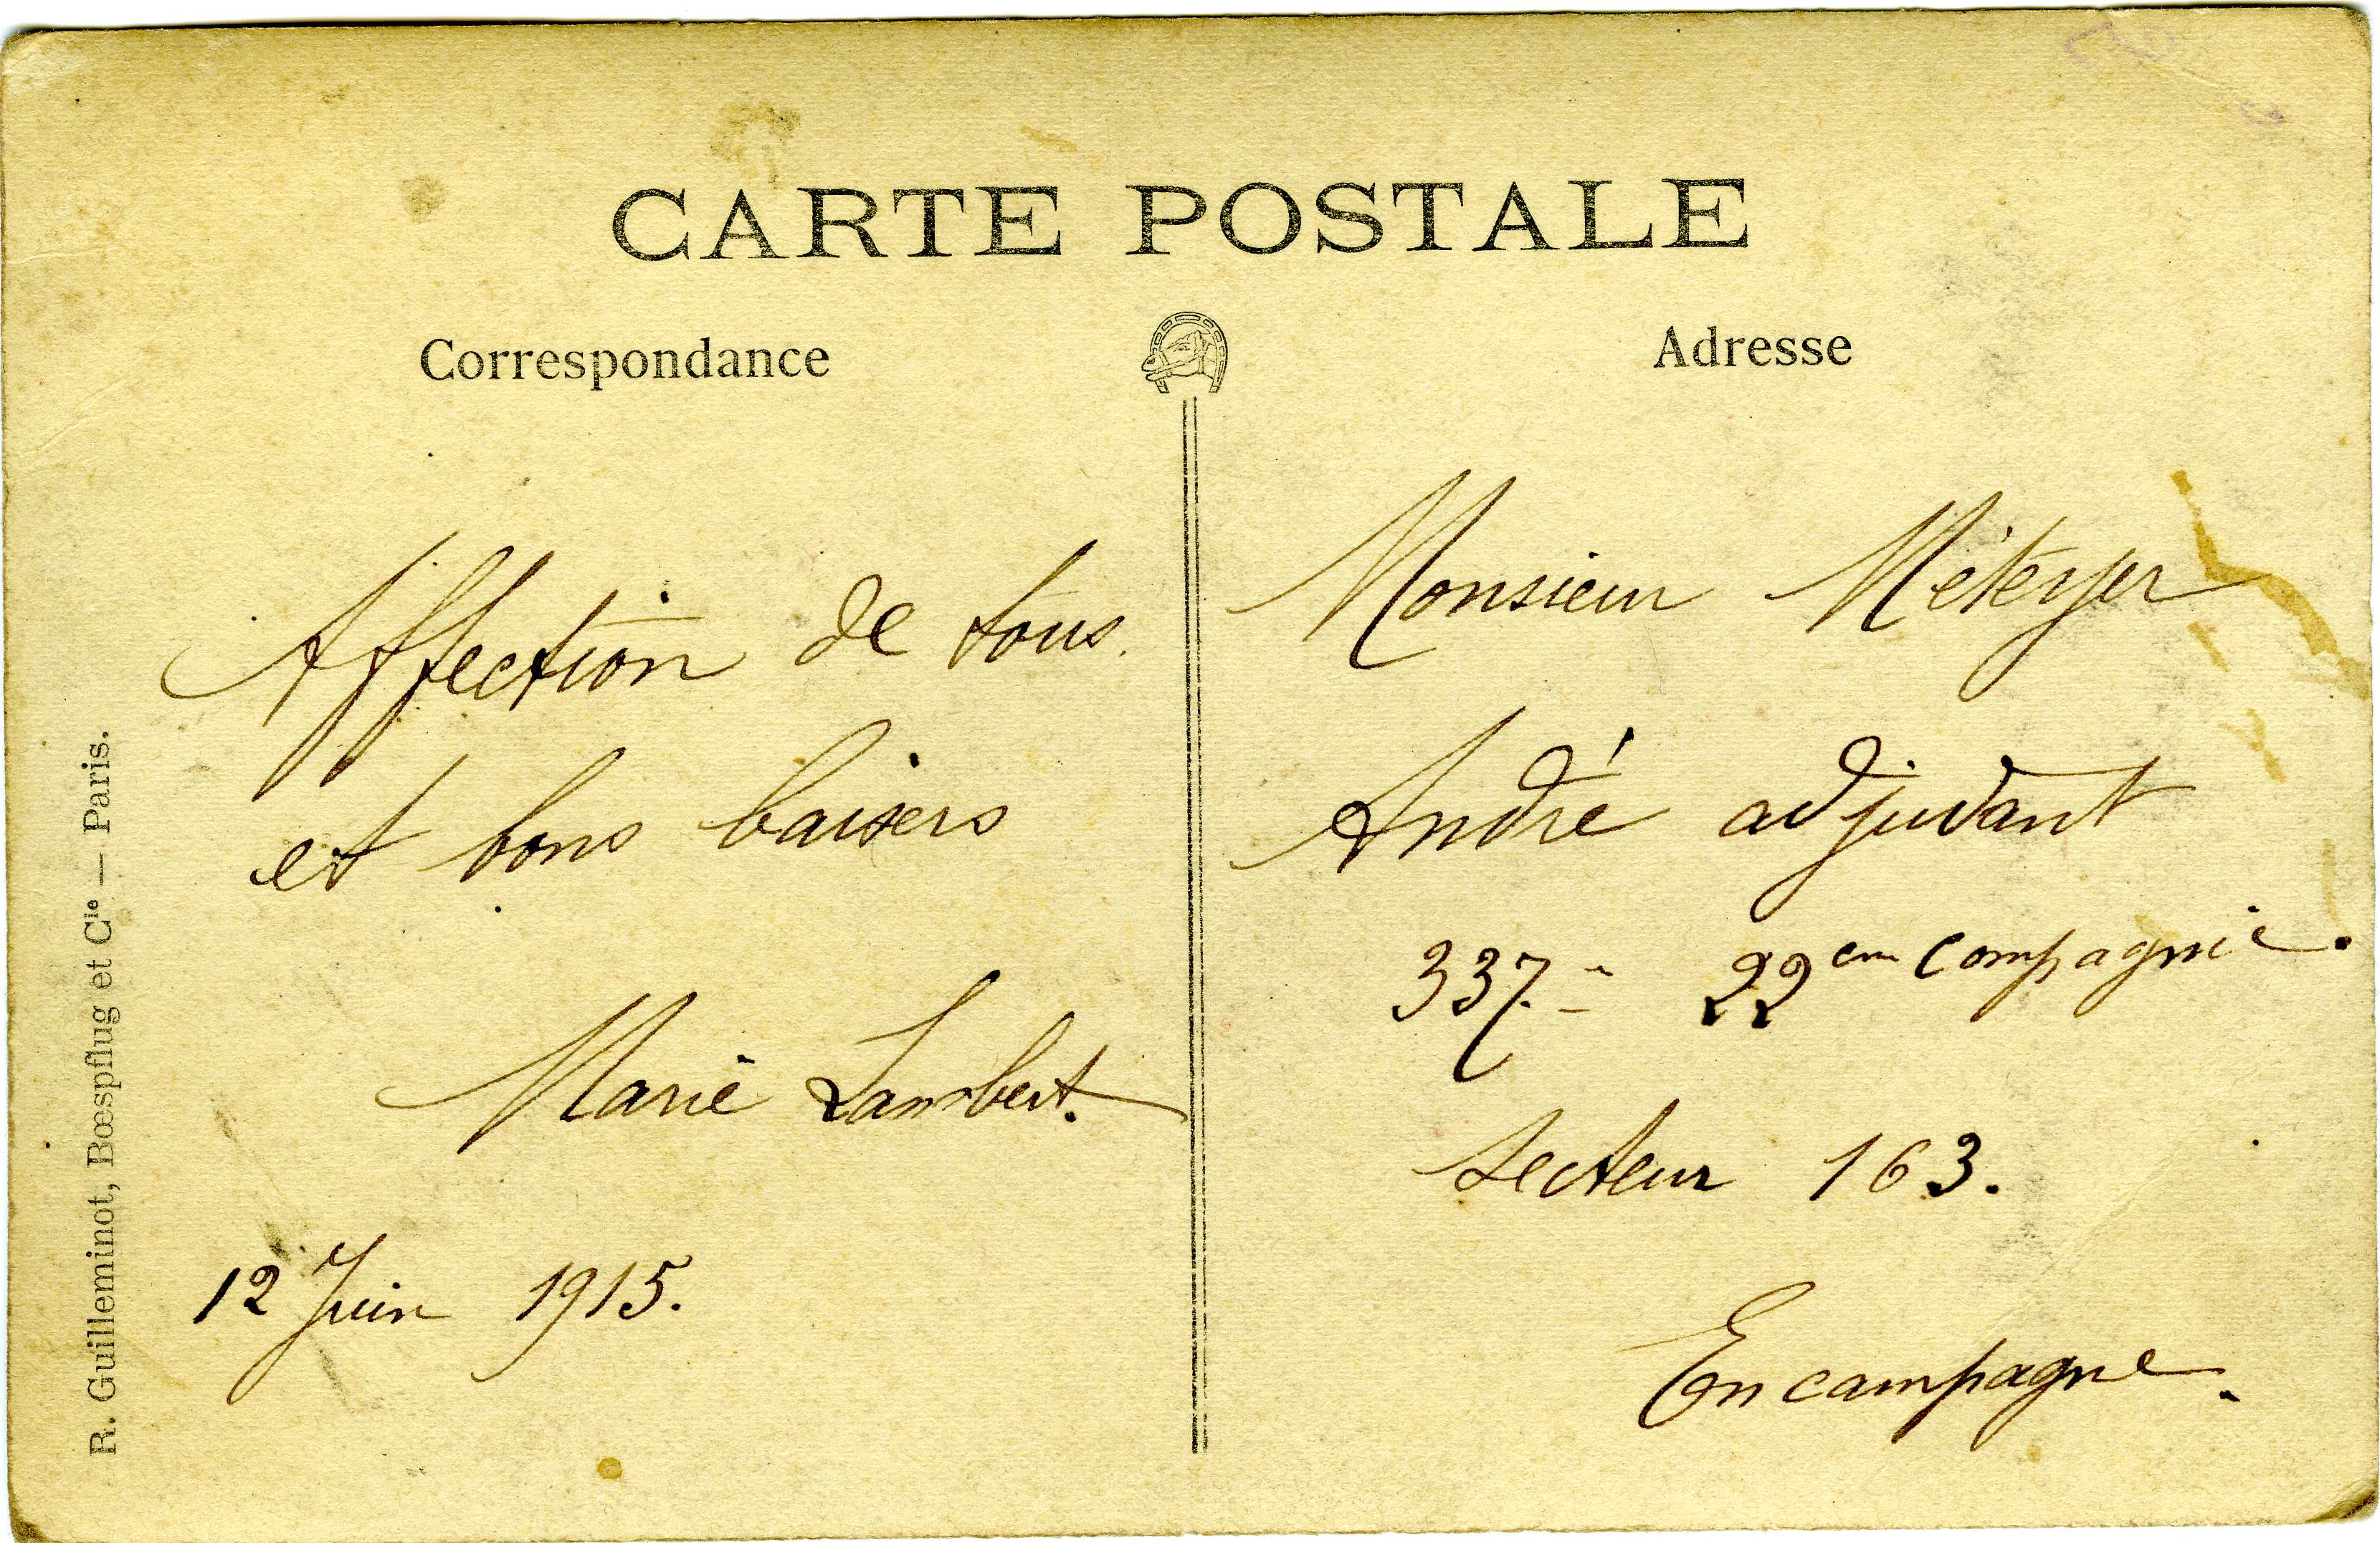 CARTE POSTALE
Correspondance
Affection de tous.
et bons baisers
Marie Lambert.
12 Juin 1915.
Adresse
Monsieur Météyer
André adjudant
337. - 22em Compagnie.
Secteur 163.
En campagne.
R. Guilleminot, Bœspflug et Cie — Paris.